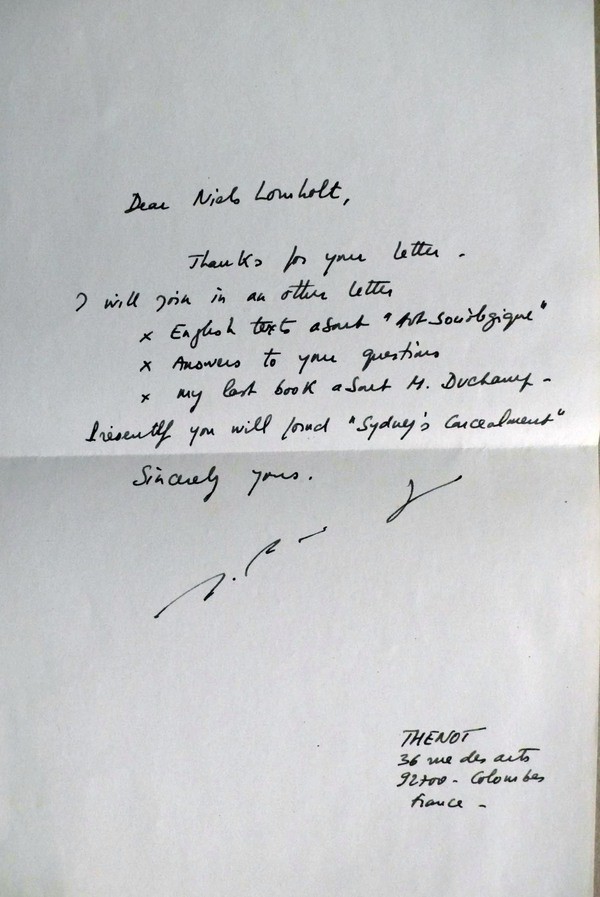 Dear Niels Lomholt,
Thanks for your letter -
I will join in an other letter
x English texts about "Art Sociologique"
x Answers to your questions
x my last book about M. Duchamp -
Presently you will found "Sydney's Concealment"
Sincerely yours.
THENOT
36 rue des arts
92700 - Colombes
France -